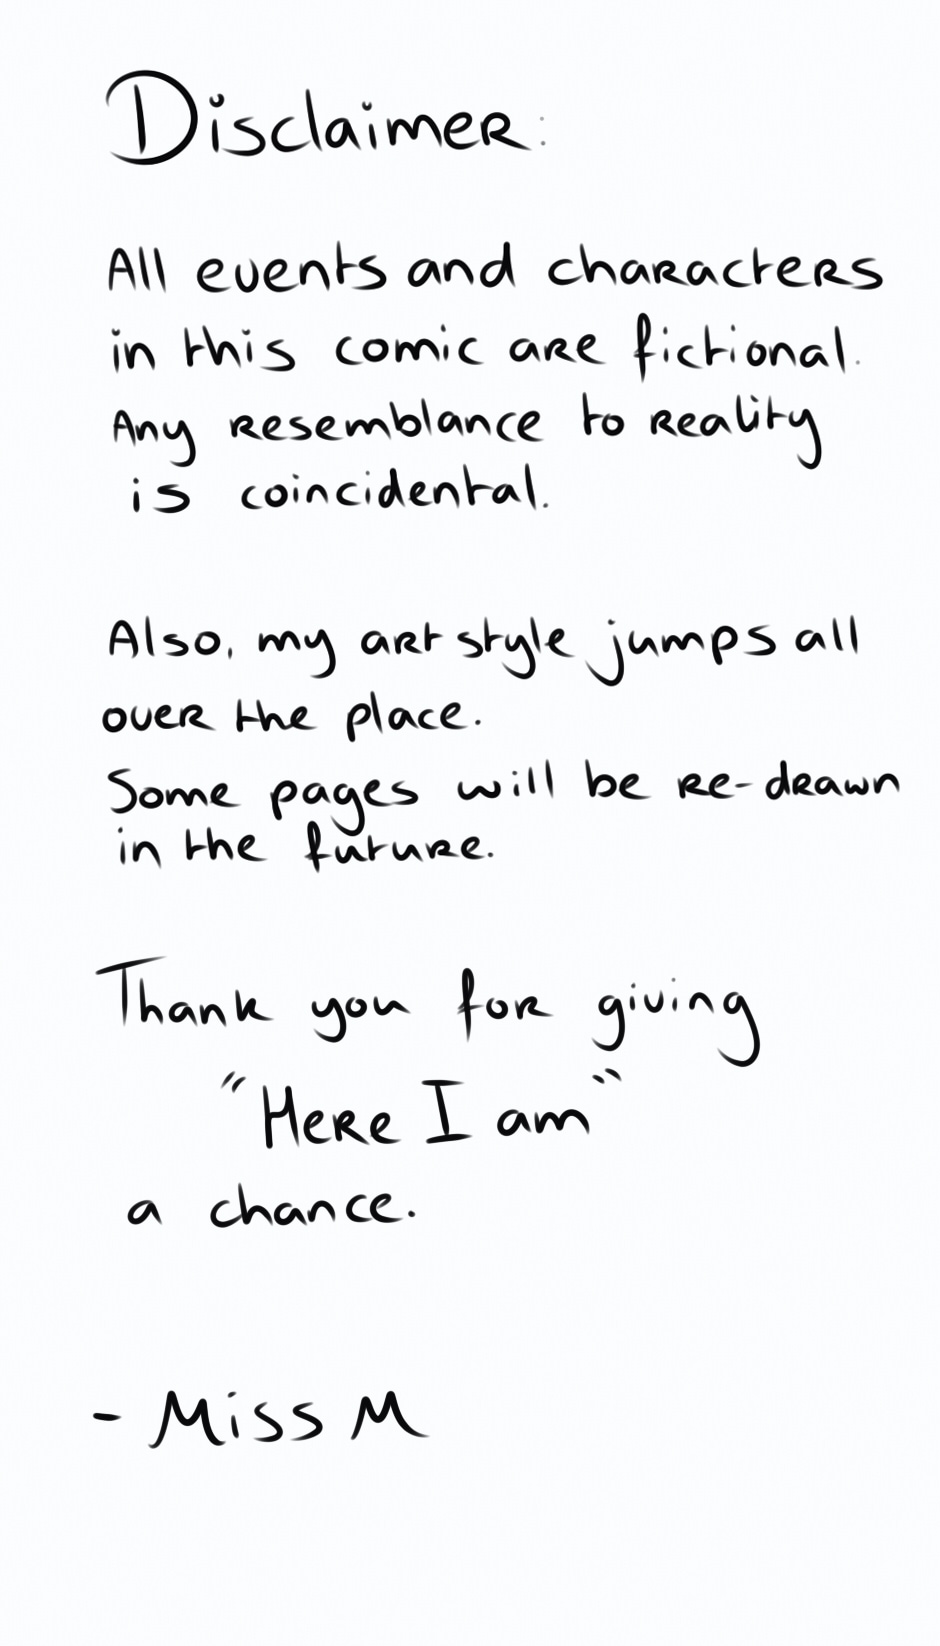 Disclaimer:
All events and characters
in this comic are fictional.
Any resemblance to reality
is coincidental.
Also, my art style jumps all
over the place.
Some pages will be re-drawn
in the future.
Thank you for giving
"Here I am"
a chance.
- Miss M